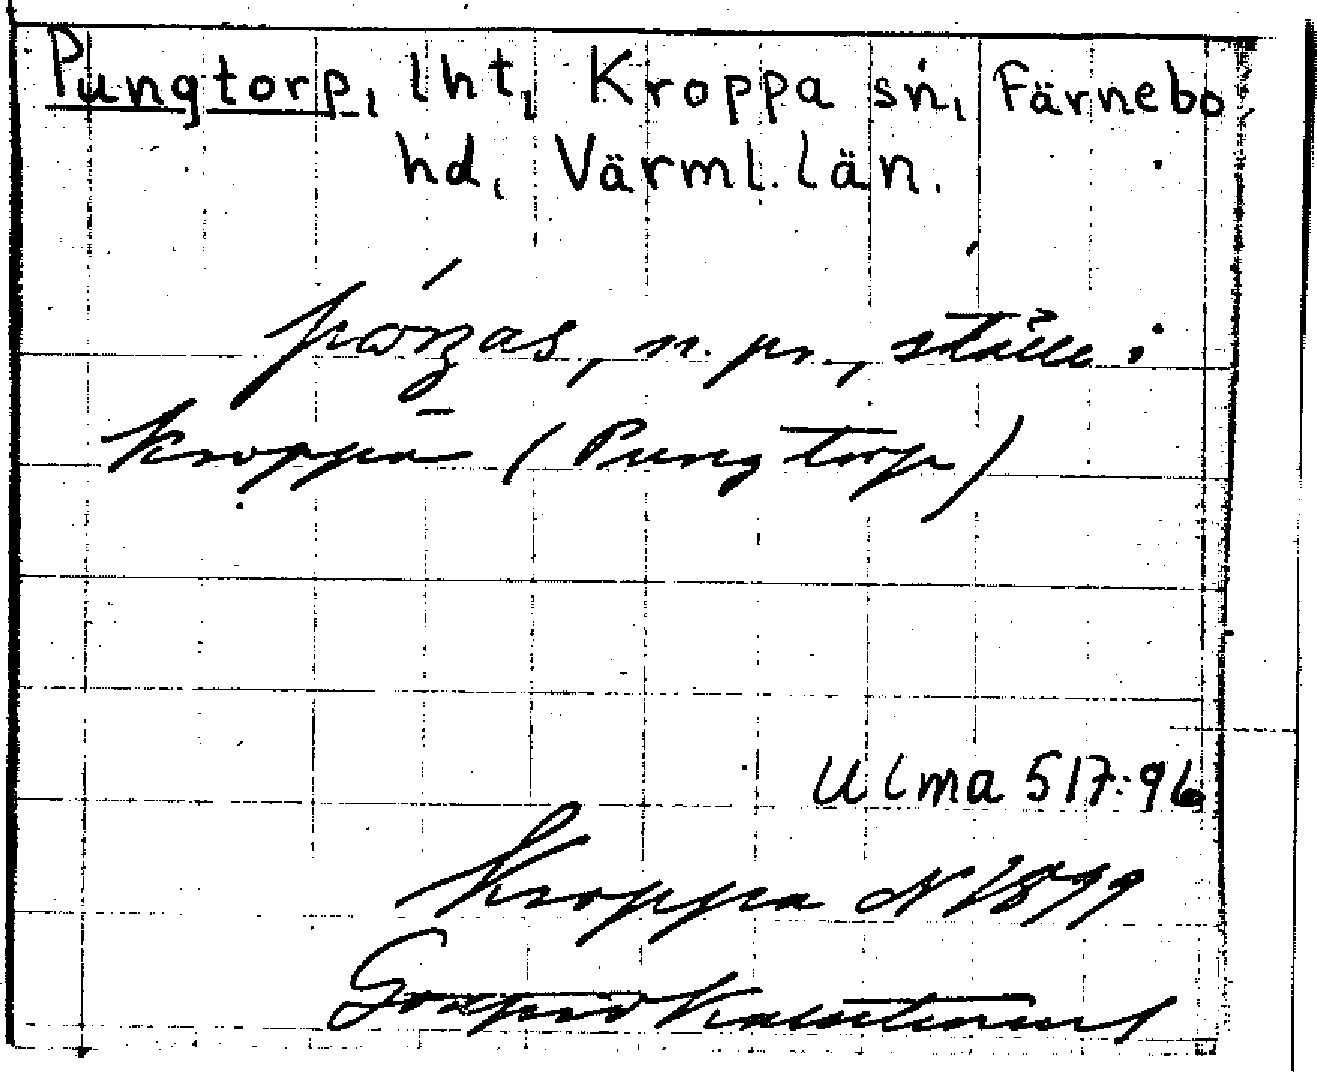 Pungtorp, lht, Kroppa sn, Färnebo
hd, Värml. län.
n. pr., ställe i
Kroppa (Pungtorp)
Ulma 517:96
Kroppa N 1899
Godfrid Kallstenius